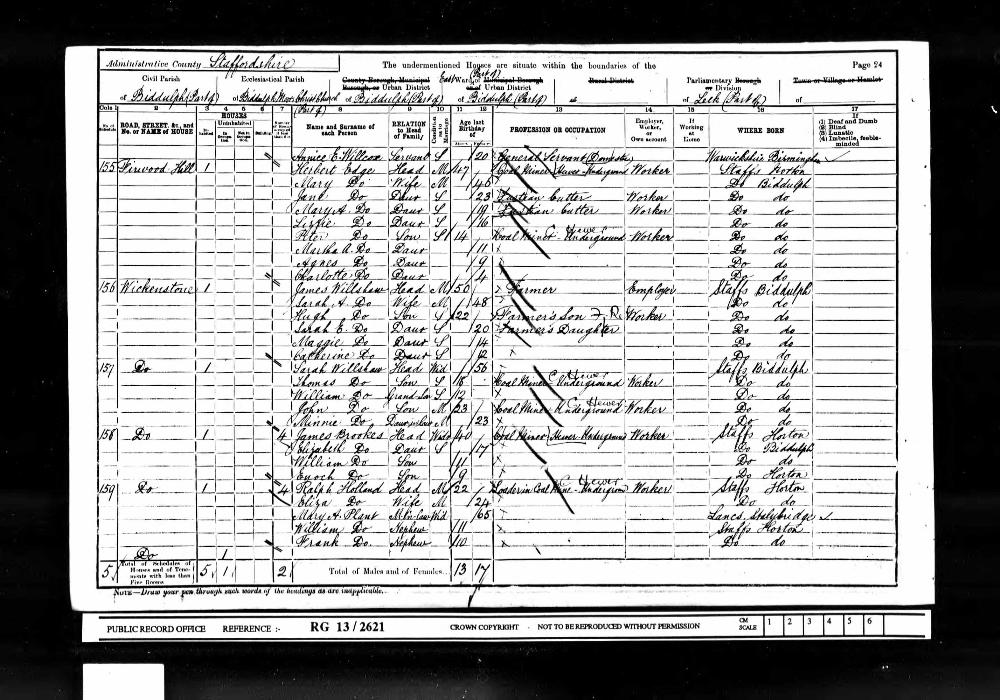 Administrative County Staffordshire The undermentioned Houses are situate within the boundaries of the Page 24
Civil Parish Ecclesiastical Parish County Borough, Municipal Borough, or Urban District Ward of Municipal Borough or of Urban District Rural District Parliamentary Borough or Division Town or Village or Hamlet
of Biddulph (Part of) of Biddulph Moor Christ Church (Part of) of Biddulph (Part of) East (Part of) of Biddulph (Part of) at of Leek (Part of) of
Cols 1 2 3 4 5 6 7 8 9 10 11 12 13 14 15 16 17
No. of Schedule ROAD, STREET, &c., and No. or NAME of HOUSE HOUSES Inhabited Uninhabited In Occupation Not in Occupation Building Name and Surname of each Person RELATION to Head of Family Condition as to Marriage Age last Birthday of PROFESSION OR OCCUPATION Employer, Worker, or Own account If Working at Home WHERE BORN If (1) Deaf and Dumb (2) Blind (3) Lunatic (4) Imbecile, feeble-minded
Annice E. Willcox Servant S 20 General Servant (Domestic) Warwickshire Birmingham
155 Firwood Hill 1 Herbert Edge Head M 47 Coal Miner Hewer Underground Worker Staffs Horton
Mary Do Wife M 45 Do Biddulph
Jane Do Daur S 23 Fustian Cutter Worker Do do
Mary A. Do Daur S 19 Fustian Cutter Worker Do do
Lizzie Do Daur S 16 Do do
Peter Do Son S 14 Coal Miner Hewer Underground Worker Do do
Martha A. Do Daur 11 Do do
Agnes Do Daur 9 Do do
Charlotte Do Daur 4 Do do
156 Wickenstone 1 James Willshaw Head M 50 Farmer Employer Staffs Biddulph
Sarah A. Do Wife M 48 Do do
Hugh Do Son S 22 Farmer's Son Worker Do do
Sarah E. Do Daur S 20 Farmer's Daughter Do do
Maggie Do Daur S 14 Do do
Catherine Do Daur S 12 Do do
157 Do 1 Sarah Willshaw Head Wid 56 Staffs Biddulph
Thomas Do Son S 18 Coal Miner Hewer Underground Worker Do do
William Do Grand Son S 12 Do do
John Do Son M 23 Coal Miner Hewer Underground Worker Do do
Minnie Do Daur in law M 23 Do do
158 Do 1 4 James Brookes Head Widr 40 Coal Miner Hewer Underground Worker Staffs Horton
Elizabeth Do Daur S 17 Do Biddulph
William Do Son 11 Do do
Enoch Do Son 9 Do Horton
159 Do 1 4 Ralph Holland Head M 22 Loader in Coal Mine Hewer Underground Worker Staffs Horton
Eliza Do Wife M 24 Do do
Mary A. Plant M-in-law Wid 65 Lancs Stalybridge
William Do Nephew 11 Staffs Horton
Frank Do. Nephew 10 Do do
Do 1
5 Total of Schedules of Houses and of Tenements with less than Five Rooms 5 1 2 Total of Males and of Females... 13 17
NOTE—Draw your pen through such words of the headings as are inapplicable.
PUBLIC RECORD OFFICE REFERENCE :- RG 13/2621 CROWN COPYRIGHT - NOT TO BE REPRODUCED WITHOUT PERMISSION CM SCALE 1 2 3 4 5 6